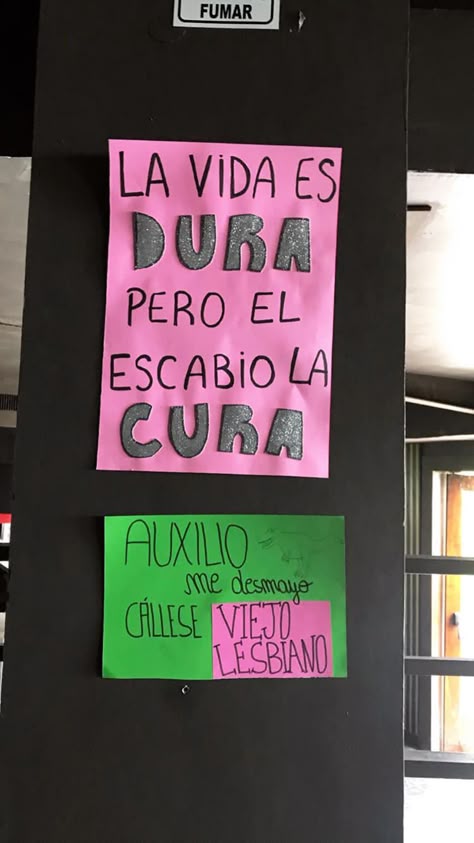 FUMAR
LA VIDA ES
DURA
PERO EL
ESCABIO LA
CURA
AUXILIO
me desmayo
CÁLLESE VIEJO
LESBIANO